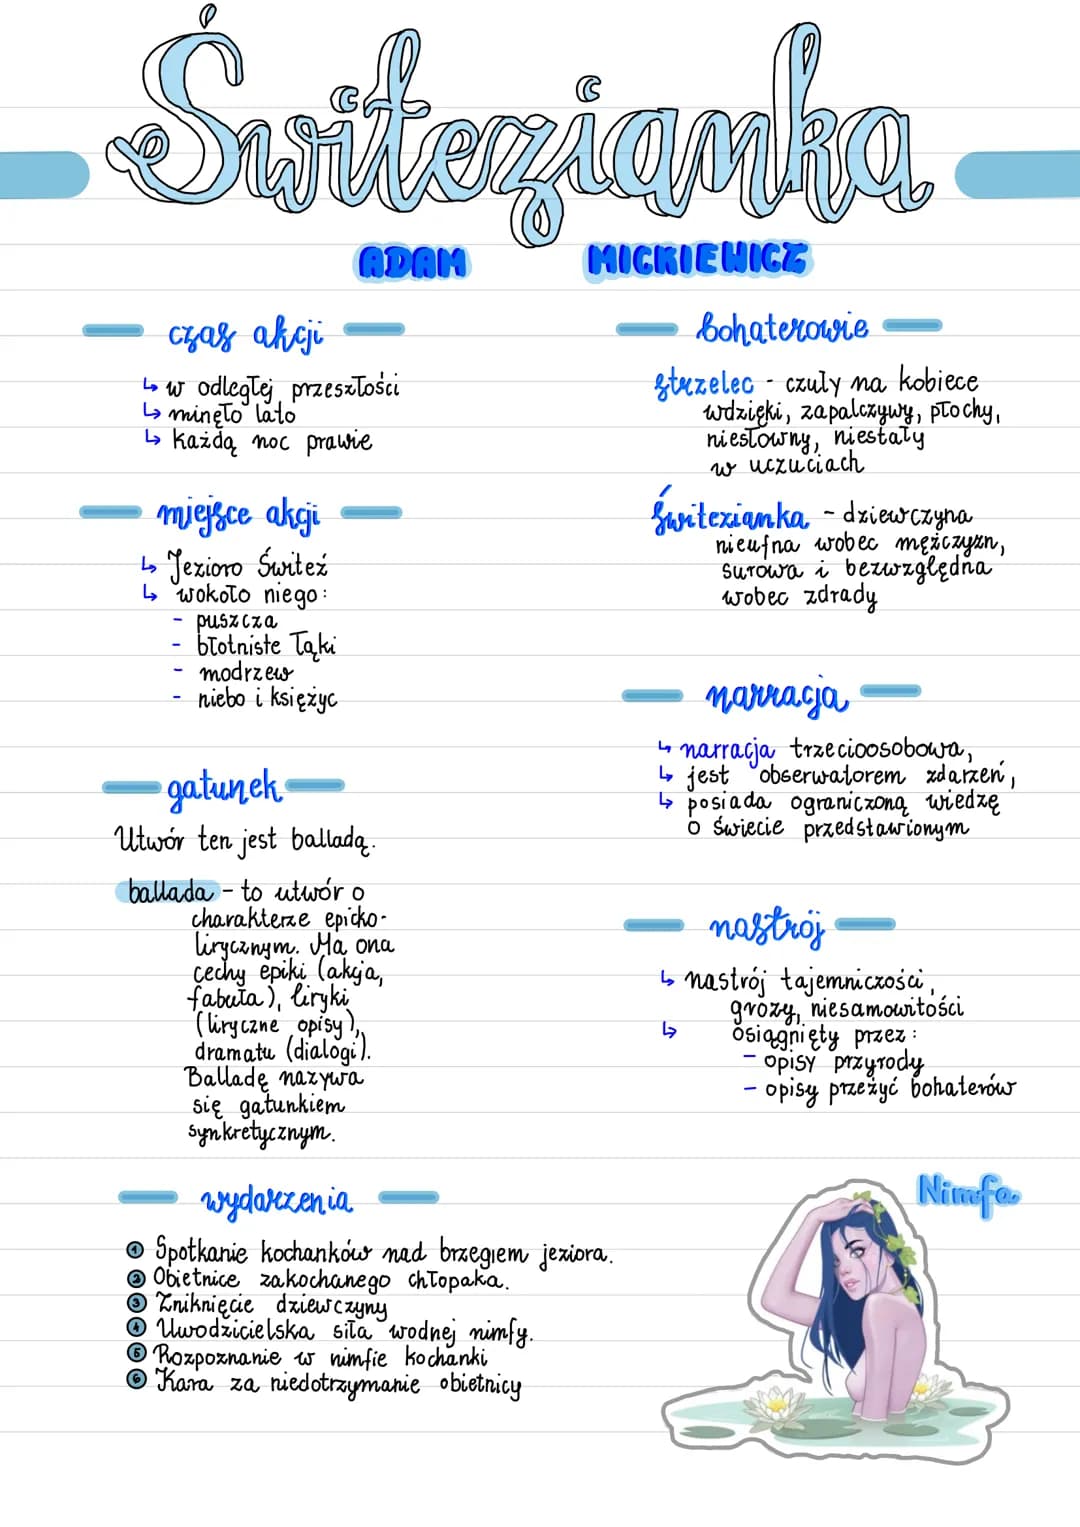 Świtezianka
ADAM MICKIEWICZ
czas akcji
↳ w odległej przeszłości
↳ minęło lato
↳ każdą noc prawie
miejsce akcji
↳ Jezioro Świteź
↳ wokoło niego:
- puszcza
- błotniste łąki
- modrzew
- niebo i księżyc
gatunek
Utwór ten jest balladą.
ballada - to utwór o
charakterze epicko-
lirycznym. Ma ona
cechy epiki (akcja,
fabuła), liryki
(liryczne opisy),
dramatu (dialogi).
Balladę nazywa
się gatunkiem
synkretycznym.
bohaterowie
strzelec - czuły na kobiece
wdzięki, zapalczywy, płochy,
niesłowny, niestały
w uczuciach
Świtezianka - dziewczyna
nieufna wobec mężczyzn,
surowa i bezwzględna
wobec zdrady
narracja
↳ narracja trzecioosobowa,
↳ jest obserwatorem zdarzeń,
↳ posiada ograniczoną wiedzę
o świecie przedstawionym
nastrój
↳ nastrój tajemniczości,
grozy, niesamowitości
↳ osiągnięty przez:
- opisy przyrody
- opisy przeżyć bohaterów
wydarzenia
1 Spotkanie kochanków nad brzegiem jeziora.
2 Obietnice zakochanego chłopaka.
3 Zniknięcie dziewczyny
4 Uwodzicielska siła wodnej nimfy.
5 Rozpoznanie w nimfie kochanki
6 Kara za niedotrzymanie obietnicy
Nimfa